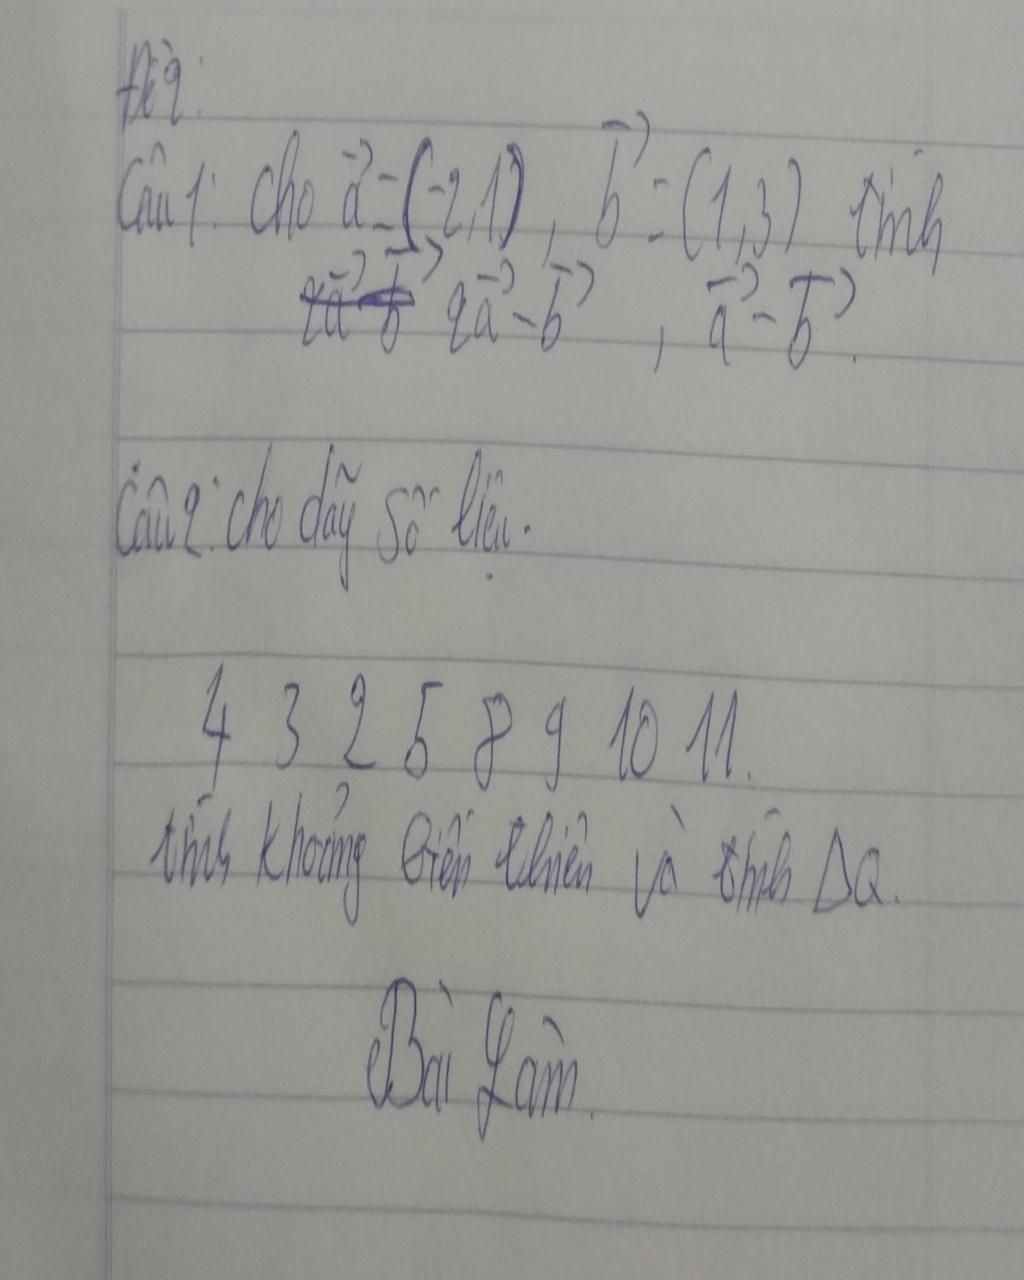 Đề 2:
Câu 1: cho a⃗ = (-2,1), b⃗ = (1,3) tính
2a⃗ - b⃗ 2a⃗ - b⃗ , a⃗ - b⃗.
Câu 2: cho dãy số liệu.
4 3 2 5 8 9 10 11.
tính khoảng biến thiên và tính ΔQ.
Bài Làm.